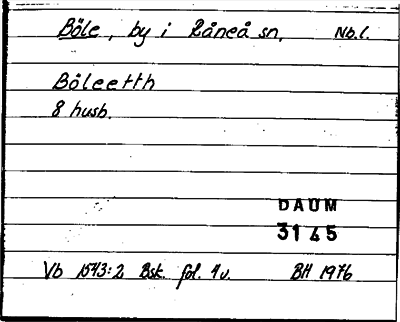 Böle, by i Råneå sn. Nb.l.
Böleetth
8 hush.
DAUM
3145
Vb 1543:2 Bsk. fol. 4v. BH 1976